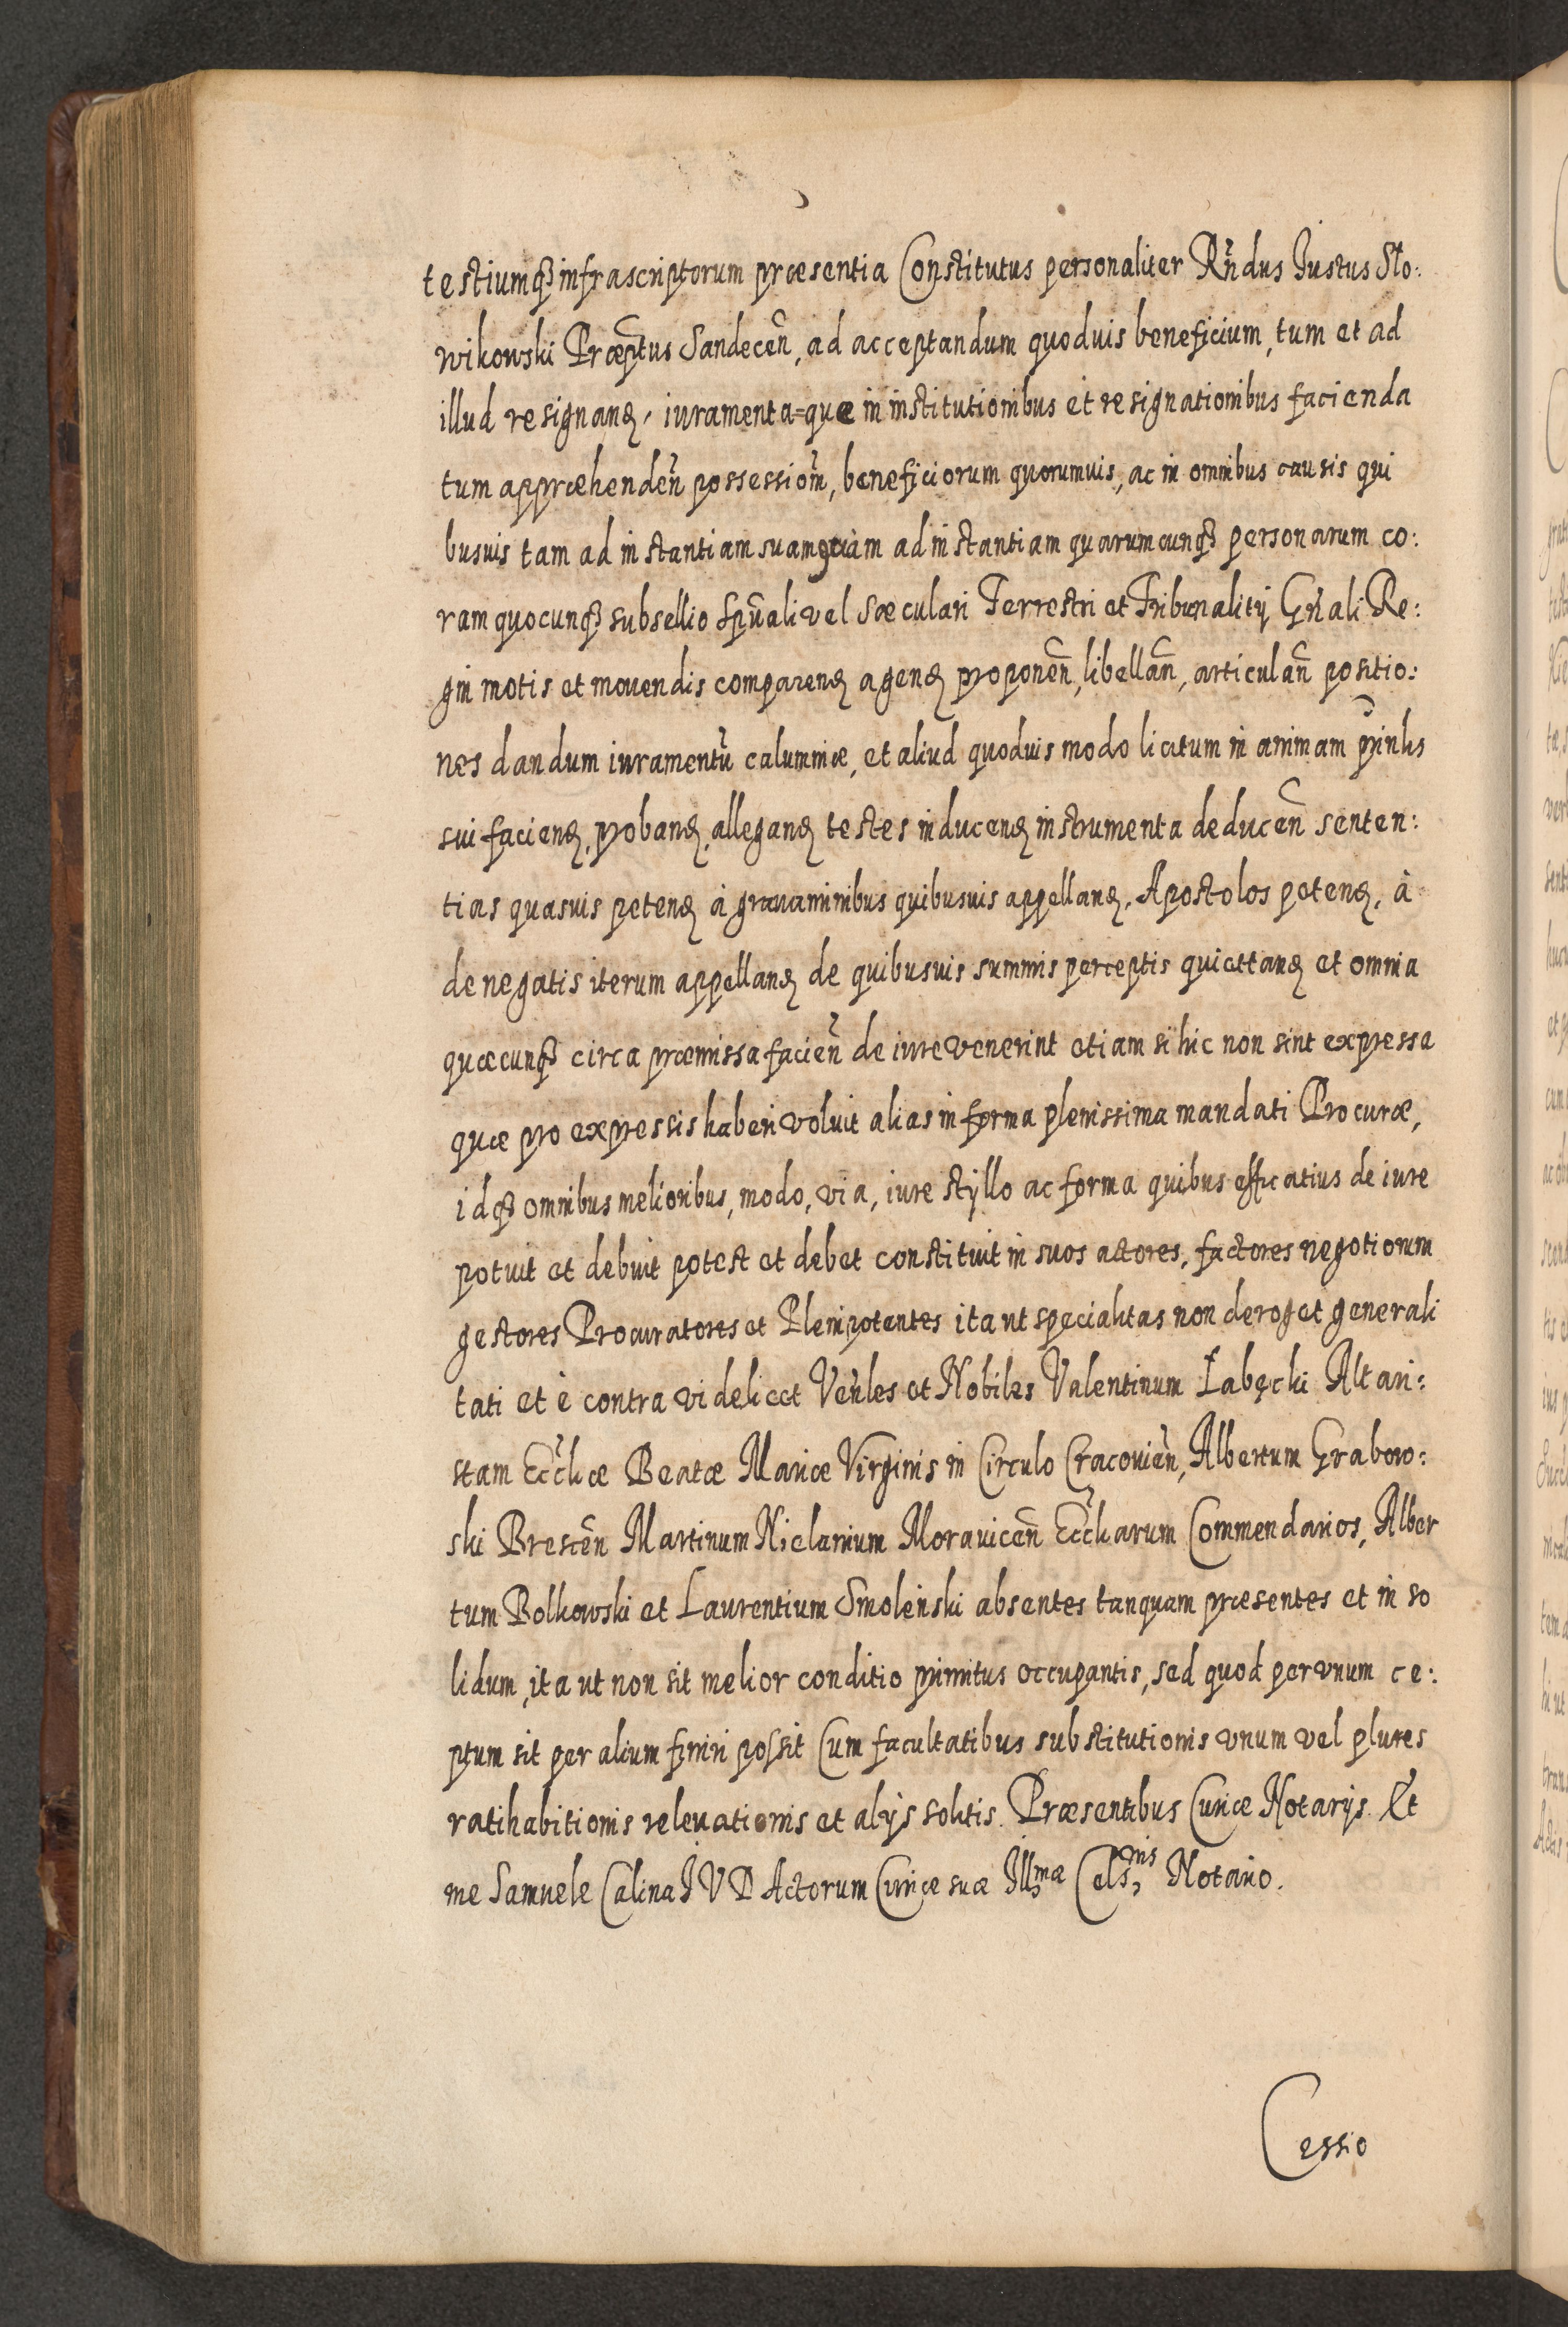 testiumq₃ infrascriptorum præsentia Constitutus personaliter Rñdus Justus Sło:
wikowski Præptus Sandecen̄, ad acceptandum quoduis beneficium, tum et ad
illud resignanɖ, iuramenta=que in institutionibus et resignationibus facienda
tum appræhenden̄ possessiom̄, beneficiorum quorumuis, ac in omnibus causis qui
busuis tam ad instantiam suam quàm ad instantiam quarumcunq₃ personarum co:
ram quocunq₃ subsellio Spūali vel Sæculari Terrestri et Tribunalitij Gn̄ali Re:
gni motis et mouendis comparenɖ agenɖ proponen̄, libellan̄, articulan̄ positio:
nes dandum iuramentū calumniæ, et aliud quoduis modo licitum in animam prin̄lis
sui facienɖ, probanɖ, alleganɖ testes inducenɖ instrumenta deducen̄ senten:
tias quasuis petenɖ à grauaminibus quibusuis appellanɖ, Apostolos petenɖ, à
denegatis iterum appellanɖ de quibusuis summis perceptis quiettanɖ et omnia
quæcunq₃ circa præmissa facien̄ de iure venerint etiam si hic non sint expressa
quæ pro expressis haberi voluit alias in forma plenissima mandati Procuræ,
idq₃ omnibus melioribus, modo, via, iure styllo ac forma quibus efficatius de iure
potuit et debuit potest et debet constituit in suos actores, factores negotiorum
gestores Procuratores et Plenipotentes ita ut specialitas non deroget generali
tati et è contra videlicet Ven̄les et Nobiles Valentinum Łabęcki Altari:
stam Eccl̄iæ Beatæ Mariæ Virginis in Circulo Cracouien̄, Albertum Grabow:
ski Brescen̄ Martinum Nielanium Morauicen̄ Eccl̄iarum Commendarios, Alber
tum Bolkowski et Laurentium Smoleński absentes tanquam præsentes et in so
lidum, ita ut non sit melior conditio primitus occupantis, sed quod per vnum ce:
ptum sit per alium finiri possit Cum facultatibus substitutionis vnum vel plures
ratihabitionis releuationis et alijs solitis. Præsentibus Curiæ Notarijs. Et
me Samuele Calina J V D Actorum Curiæ suæ Illmæ Celsnis Notario.
Cessio